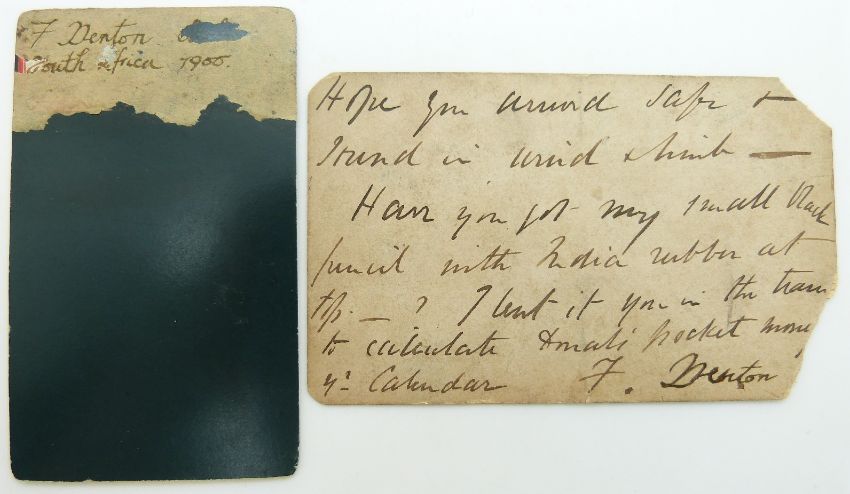 F Denton
South Africa 1900.
Hope you arrived safe &
sound in wind & limb —
Have you got my small black
pencil with India rubber at
top — ? I lent it you in the train
to calculate pocket money
Calendar F. Denton